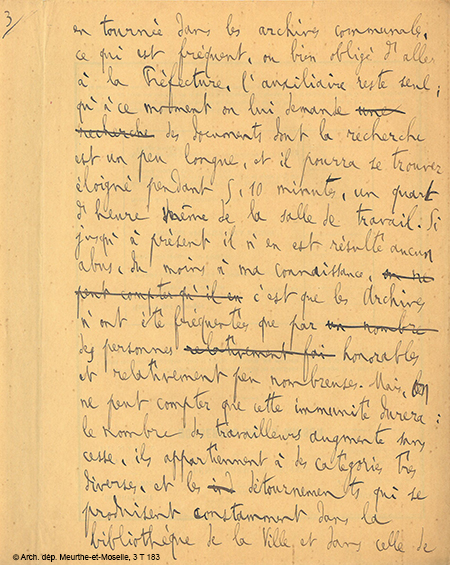 3
en tournée dans les archives communales,
ce qui est fréquent, ou bien obligé d'aller
à la Préfecture, l'auxiliaire reste seul ;
qu'à ce moment on lui demande une
recherche des documents dont la recherche
est un peu longue, et il pourra se trouver
éloigné pendant 5, 10 minutes, un quart
d'heure même de la salle de travail. Si
jusqu'à présent il n'en est résulté aucun
abus, du moins à ma connaissance, on ne
peut compter qu'il en c'est que les Archives
n'ont été fréquentées que par un nombre
des personnes relativement fai honorables
et relativement peu nombreuses. Mais, l'on
ne peut compter que cette immunité durera :
le nombre des travailleurs augmente sans
cesse, ils appartiennent à des catégories très
diverses, et les détournements qui se
produisent constamment dans la
bibliothèque de la Ville et dans celle de
© Arch. dép. Meurthe-et-Moselle, 3 T 183